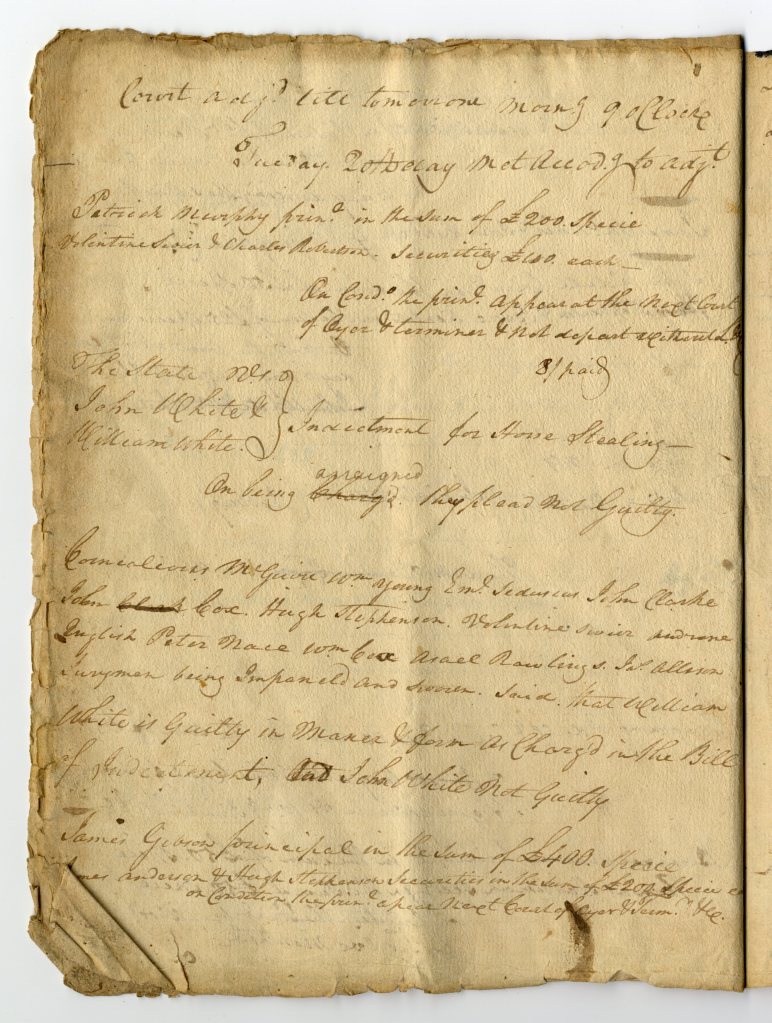 Court adjd till tomorrone morng 9 oClocke
Tuesday 20th day Met Accodg to adjt
Patrick Murphy prind in the Sum of £200. Specie
Volentine Sevier & Charles Robertson. Securities £100. each —
On Condo the prind. Appear at the Next Court
of Oyer & terminer & Not depart without
8/ paid
The State vs.
John White &
William White.
Indictment for Horse Stealing —
arraigned
On being Charg'd. they plead Not Guilty.
McGuire Wm Young Eml Seduscus John Clarke
John Clark Cox. Hugh Stephenson. Volentine Sevier
English Peter Nace Wm Cox Asael Rawlings. Js. Allison
Jurymen being Impaneld and sworen. Said. that William
White is Guilty in Maner & form as Charg'd in the Bill
of Indictment, And John White Not Guilty
James Gibson principal in the Sum of £400. Specie
anderson & Hugh Stephenson Securities in the Sum of £200 Specie
on Condition the prind apear Next Court of oyer & Term.r &c.